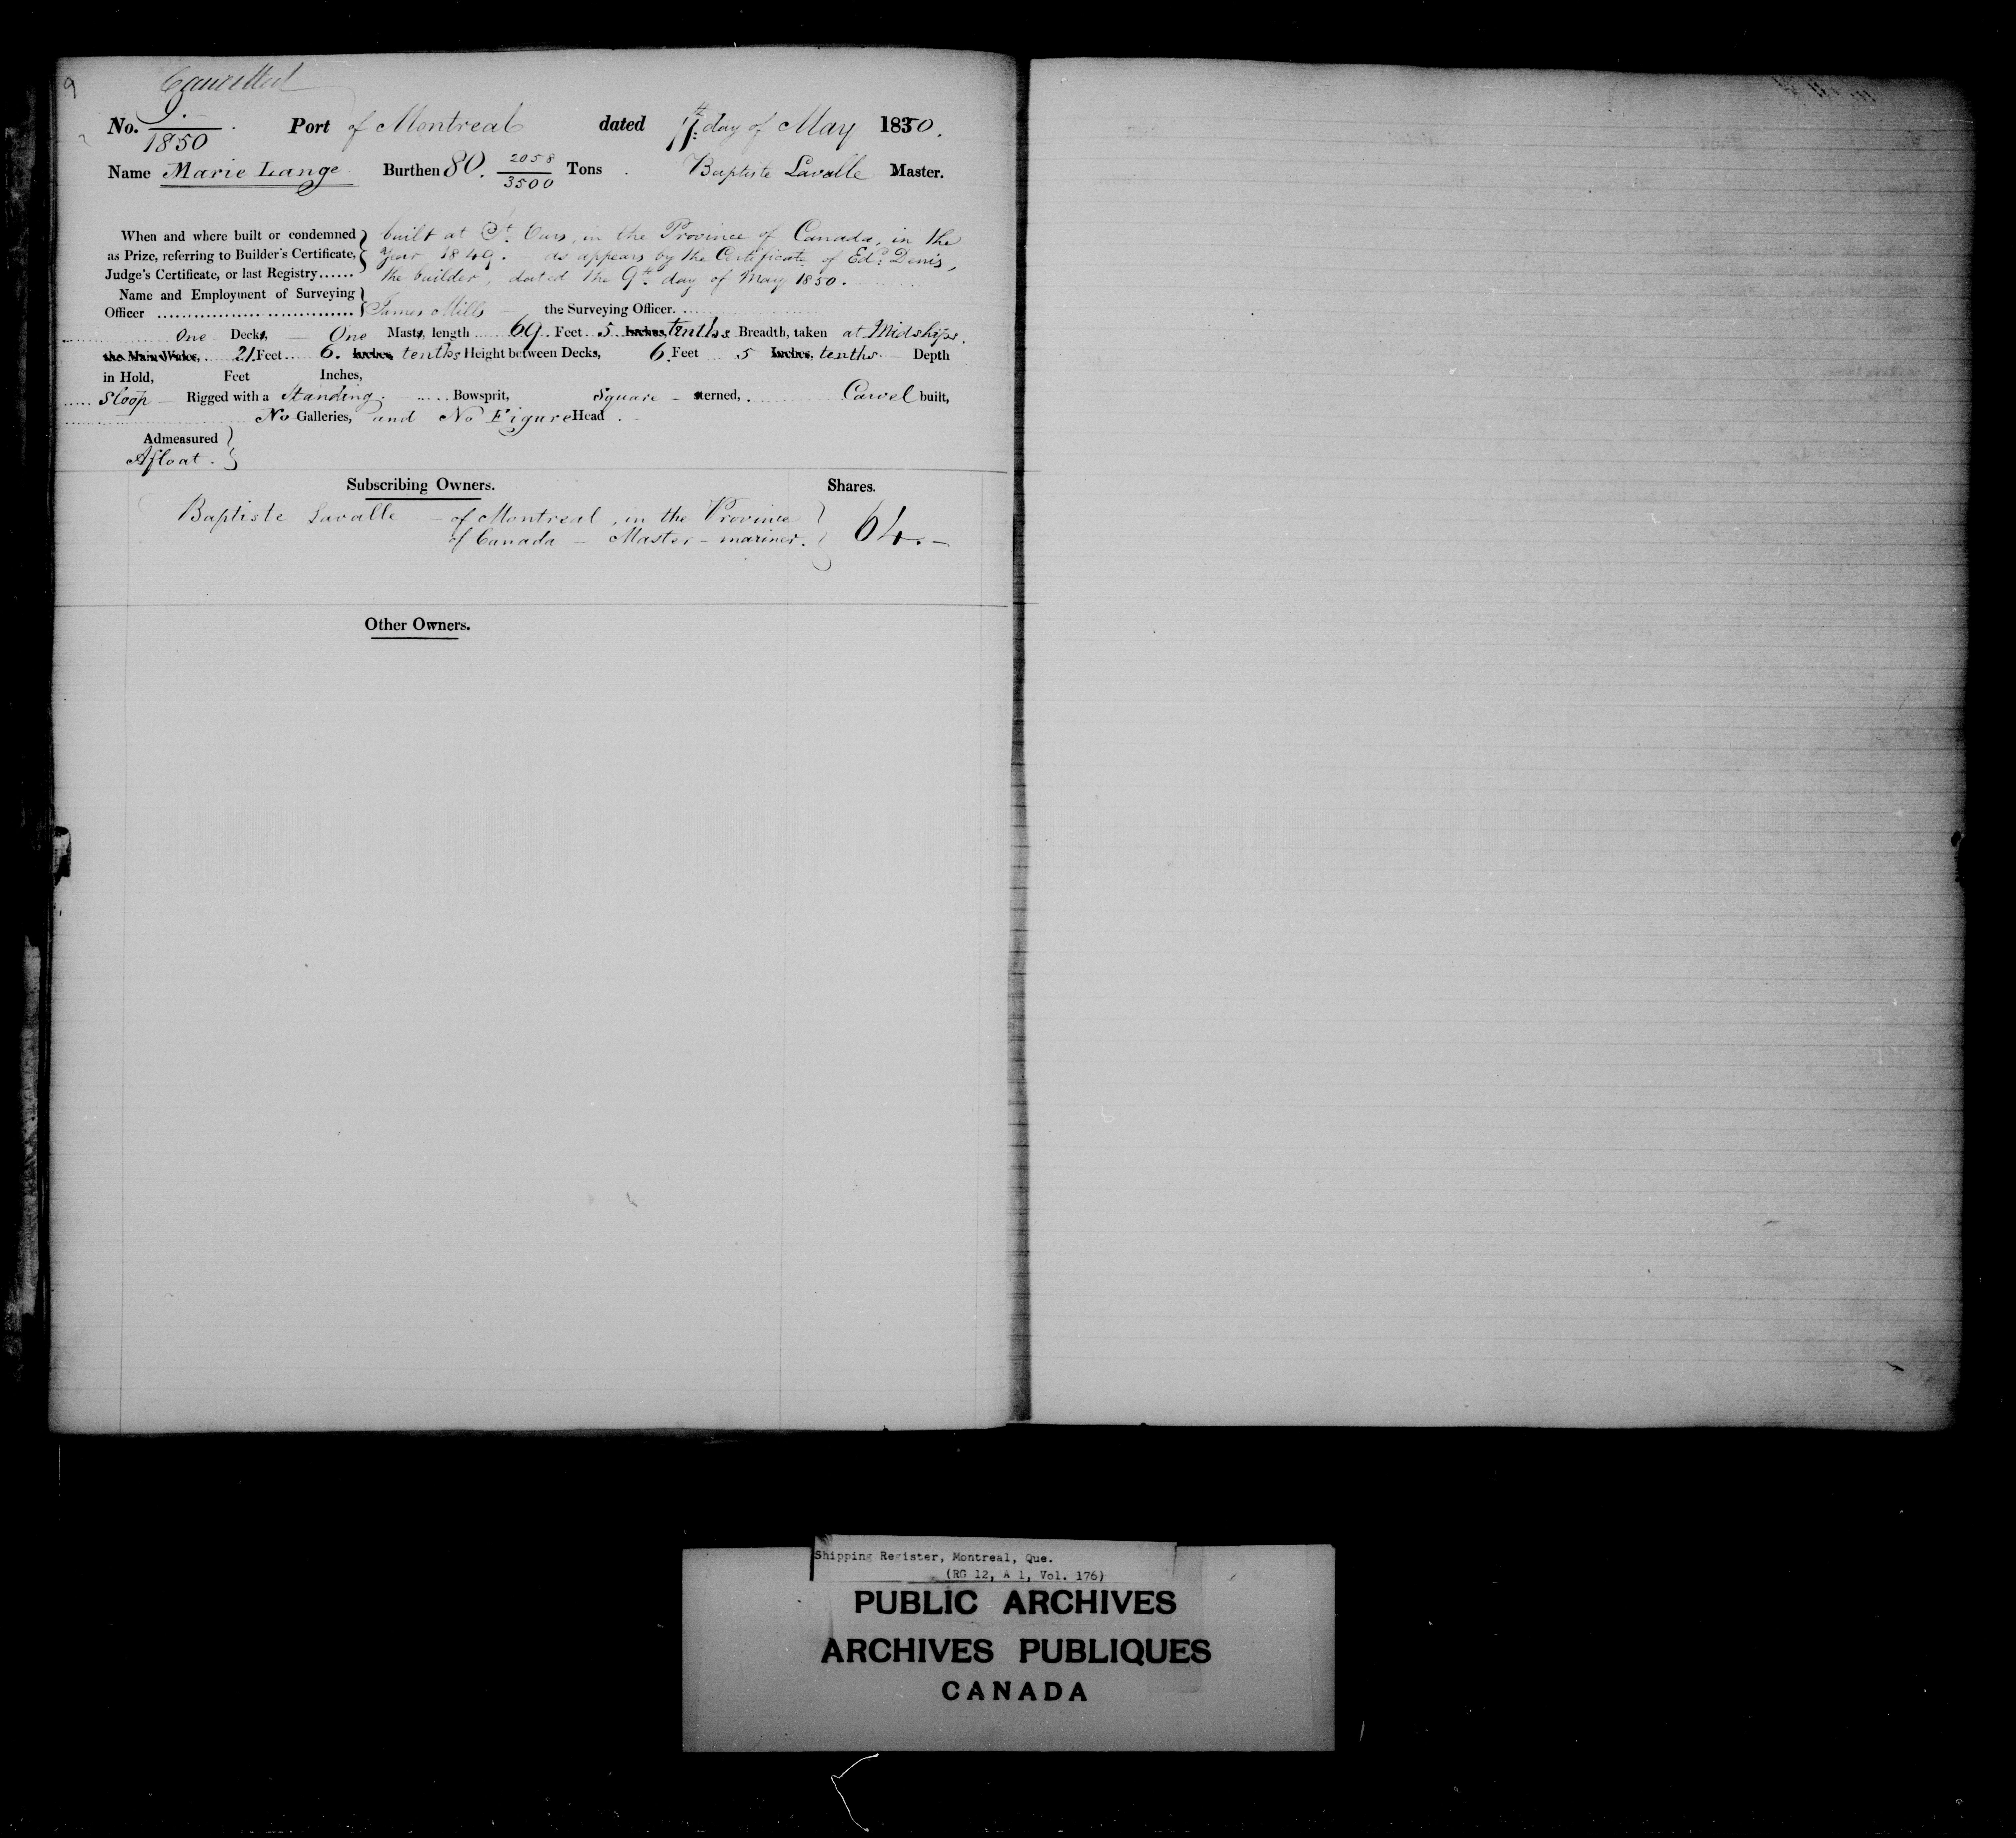 9
Cancelled
No. 9.
1850
Port of Montreal dated 11th day of May 1850.
Name Marie Lange Burthen 80. 2058/3500 Tons. Baptiste Lavalle Master.
When and where built or condemned
as Prize, referring to Builder's Certificate,
Judge's Certificate, or last Registry......
built at St. Ours, in the Province of Canada, in the
year 1849. - as appears by the Certificate of Edd. Denis,
the builder, dated the 9th day of May 1850.
Name and Employment of Surveying
Officer
James Mills the Surveying Officer.
One Decks, — One Masts, length 69 Feet 5 Inches, tenths Breadth, taken at Midships.
the Main Wales, 21 Feet 6. Inches, tenths Height between Decks, 6 Feet 5 Inches, tenths — Depth
in Hold, Feet Inches,
Sloop — Rigged with a Standing. Bowsprit, Square - sterned, Carvel built,
No Galleries, and No Figure Head.
Admeasured
Afloat.
Subscribing Owners. Shares.
Baptiste Lavalle - of Montreal, in the Province
of Canada - Master - mariner. 64. -
Other Owners.
Shipping Register, Montreal, Que.
(RG 12, A 1, Vol. 176)
PUBLIC ARCHIVES
ARCHIVES PUBLIQUES
CANADA